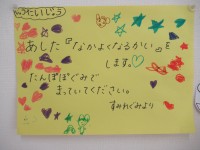 しょうたいじょう
あした『なかよくなるかい』を
します。
たんぽぽぐみで
まっていてください。
すみれぐみより